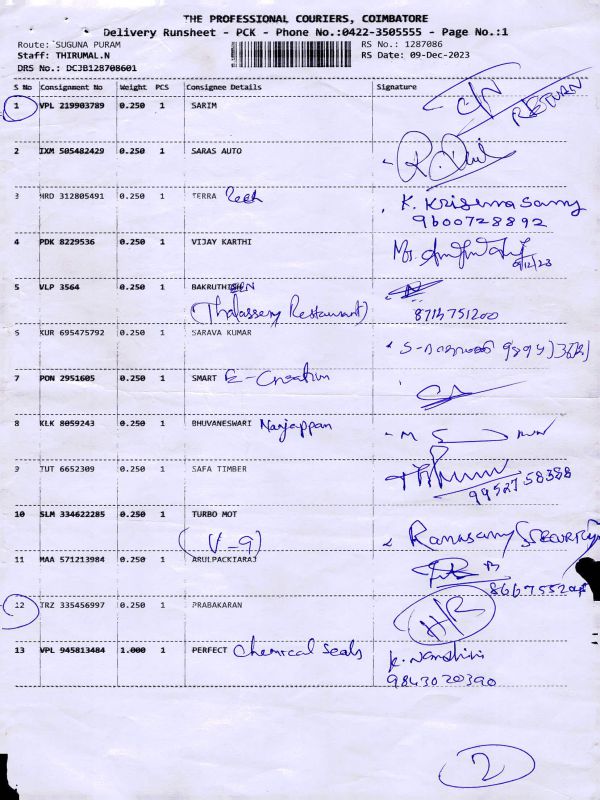 THE PROFESSIONAL COURIERS, COIMBATORE
Delivery Runsheet - PCK - Phone No.:0422-3505555 - Page No.:1
Route: SUGUNA PURAM RS No.: 1287086
Staff: THIRUMAL.N RS Date: 09-Dec-2023
DRS No.: DCJB128708601
S No Consignment No Weight PCS Consignee Details Signature
1 VPL 219903789 0.250 1 SARIM RETURN
2 IXM 505482429 0.250 1 SARAS AUTO
3 HRD 312805491 0.250 1 TERRA Tech K. Krishna Samy
9600728892
4 PDK 8229536 0.250 1 VIJAY KARTHI
9/12/23
5 VLP 3564 0.250 1 BAKRUTHEEN
(Thalassery Restaurant) 8714751200
6 KUR 695475792 0.250 1 SARAVA KUMAR
7 PON 2951605 0.250 1 SMART E-Creation
8 KLK 8059243 0.250 1 BHUVANESWARI Nanjappan
9 TUT 6652309 0.250 1 SAFA TIMBER
9952758388
10 SLM 334622285 0.250 1 TURBO MOT Ramasamy (SECURITY)
(V-9)
11 MAA 571213984 0.250 1 ARULPACKIARAJ
12 TRZ 335456997 0.250 1 PRABAKARAN H/R
13 VPL 945813484 1.000 1 PERFECT Chemical Seals K. Nandhini
9843020390
2